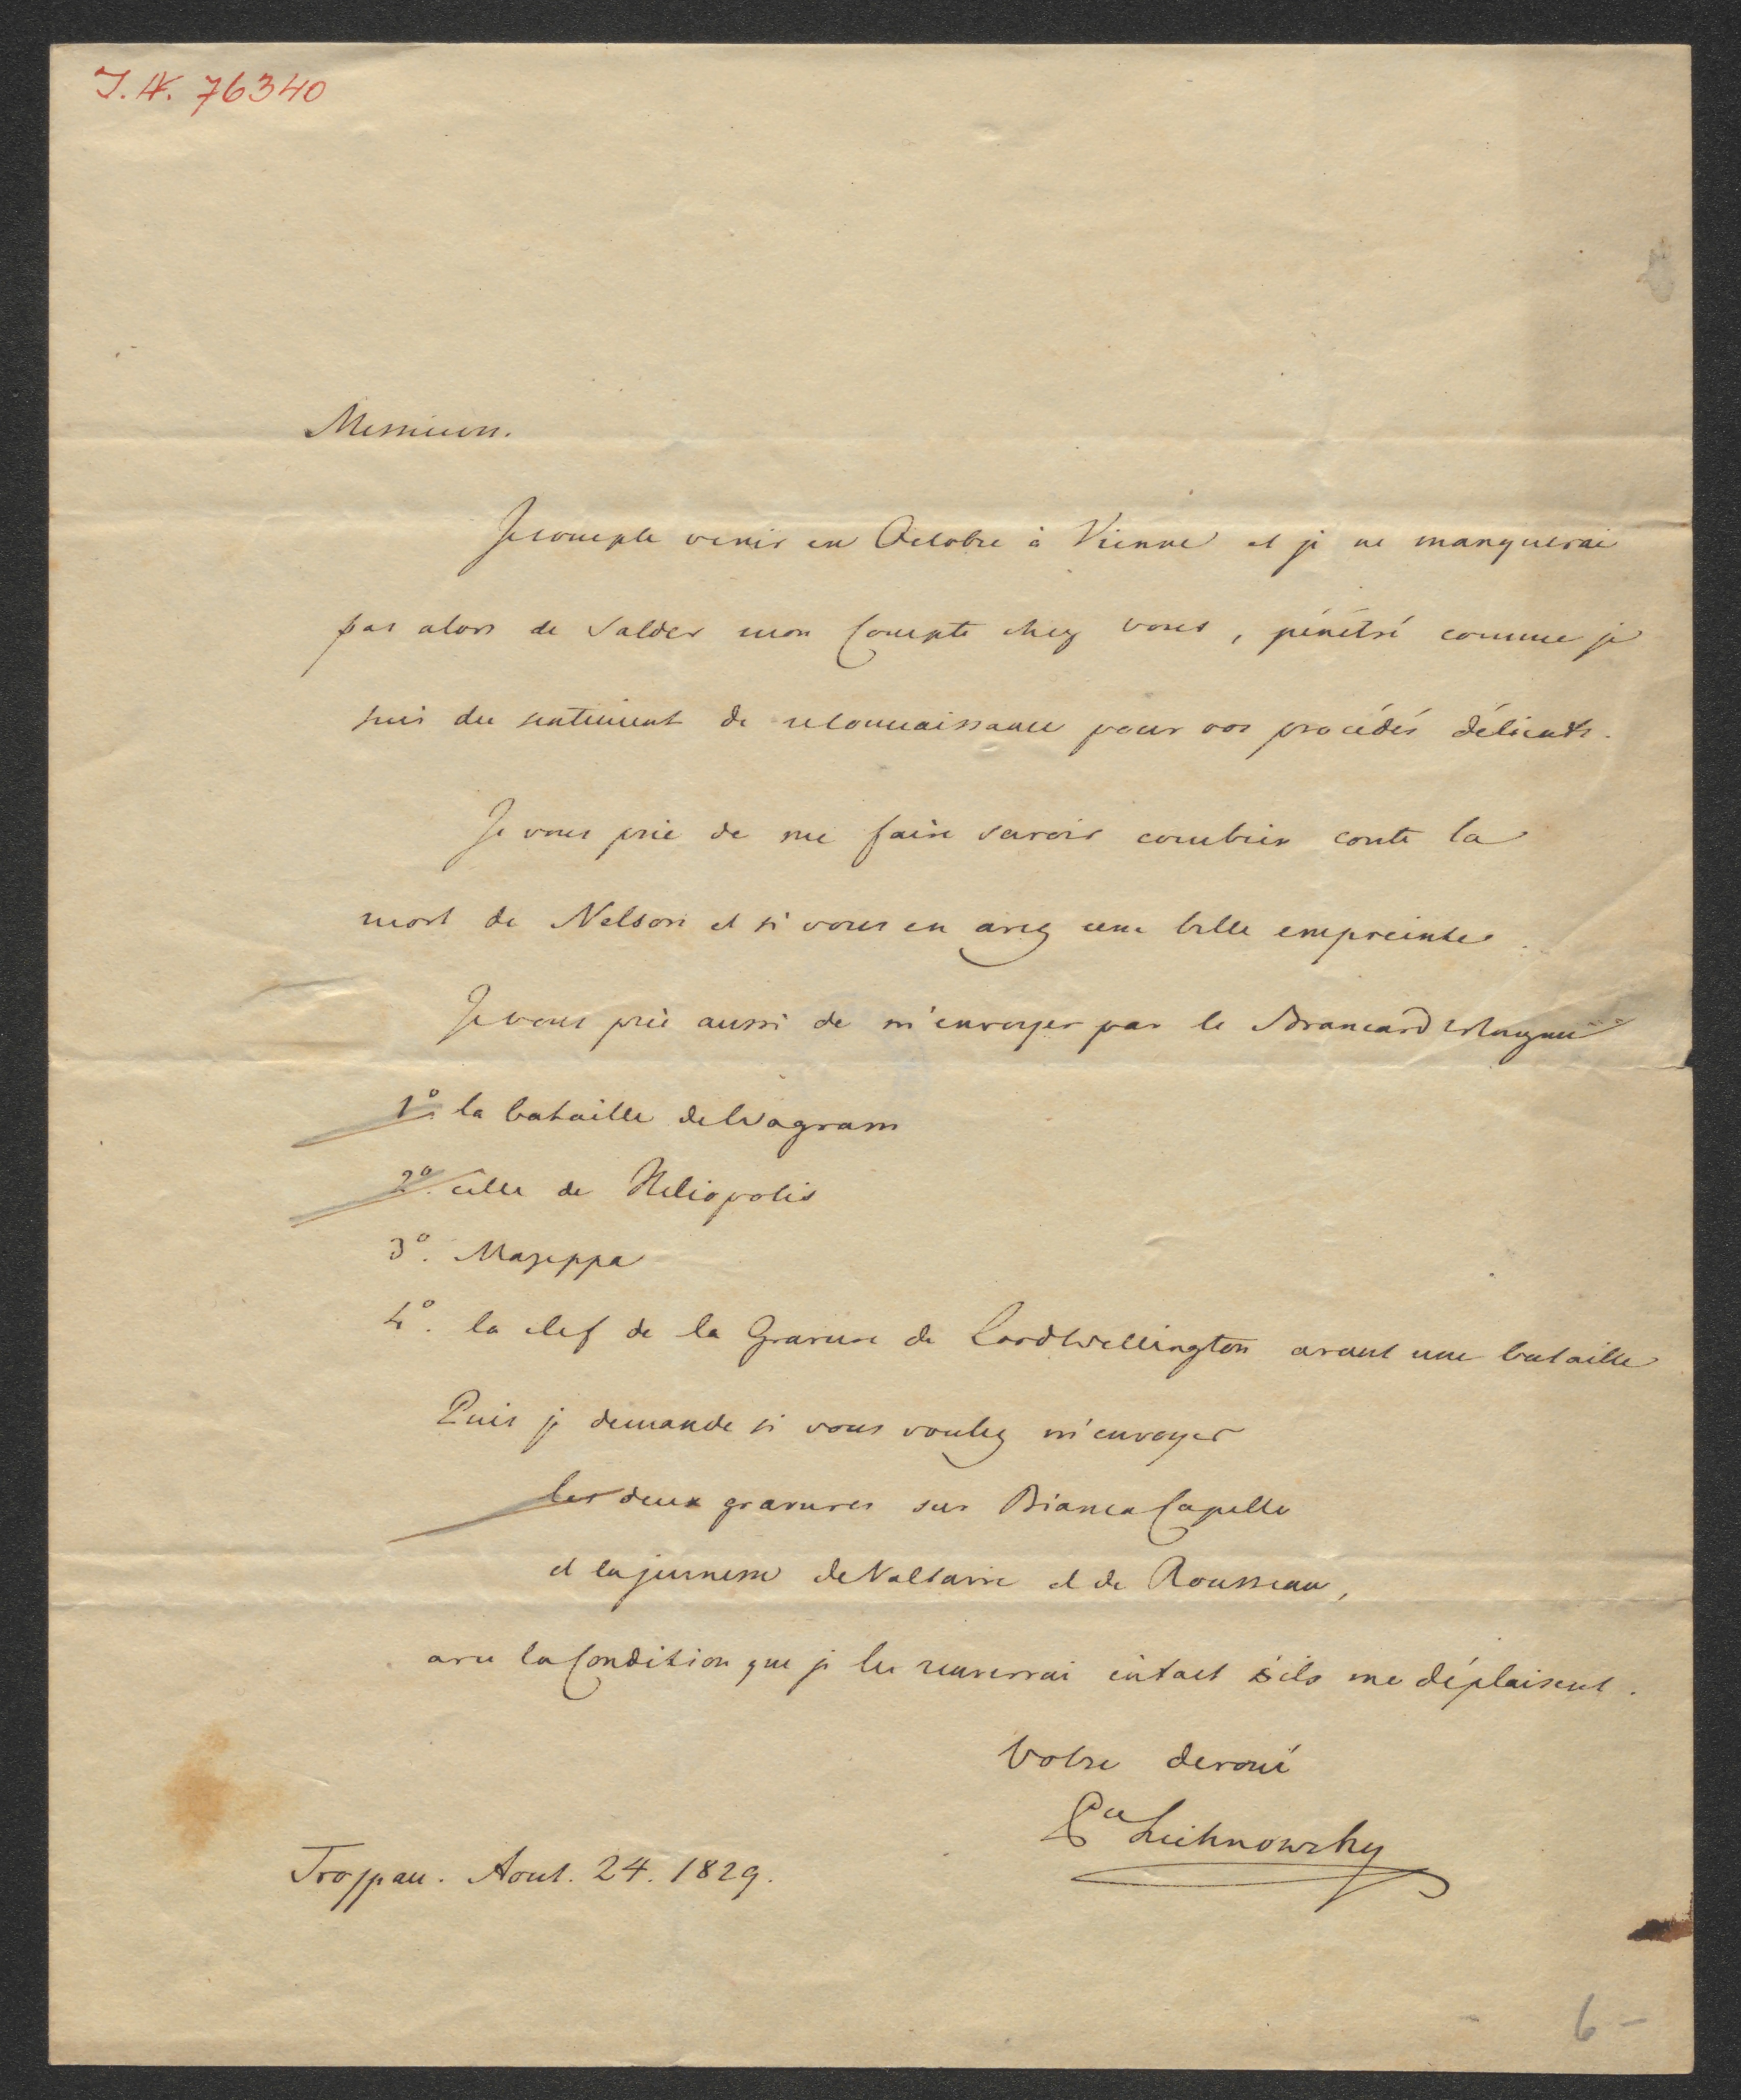 I.N. 76340
Messieurs.
Je compte venir en Octobre à Vienne et je ne manquerai
pas alors de Salder mon Compte chez vous, pénétré comme je
suis du sentiment de reconnaissance pour vos procédés délicats.
Je vous prie de me faire savoir combien coute la
mort de Nelson et si vous en avez une belle empreinte.
Je vous prie aussi de m'envoyer par le Brancard
1º. la bataille de Wagram
2º. celle de Heliopolis
3º. Mazeppa
4º. la clef de la Gravure de Lord Wellington avant une bataille
Puis je demande si vous voulez m'envoyer
les deux gravures sur Bianca Capello
et la jeunesse de Voltaire et de Rousseau,
avec la Condition que je les renverrai intact s'ils me déplaisent.
Votre devoué
Pce Lichnowsky
Troppau. Aout. 24. 1829.
6 -